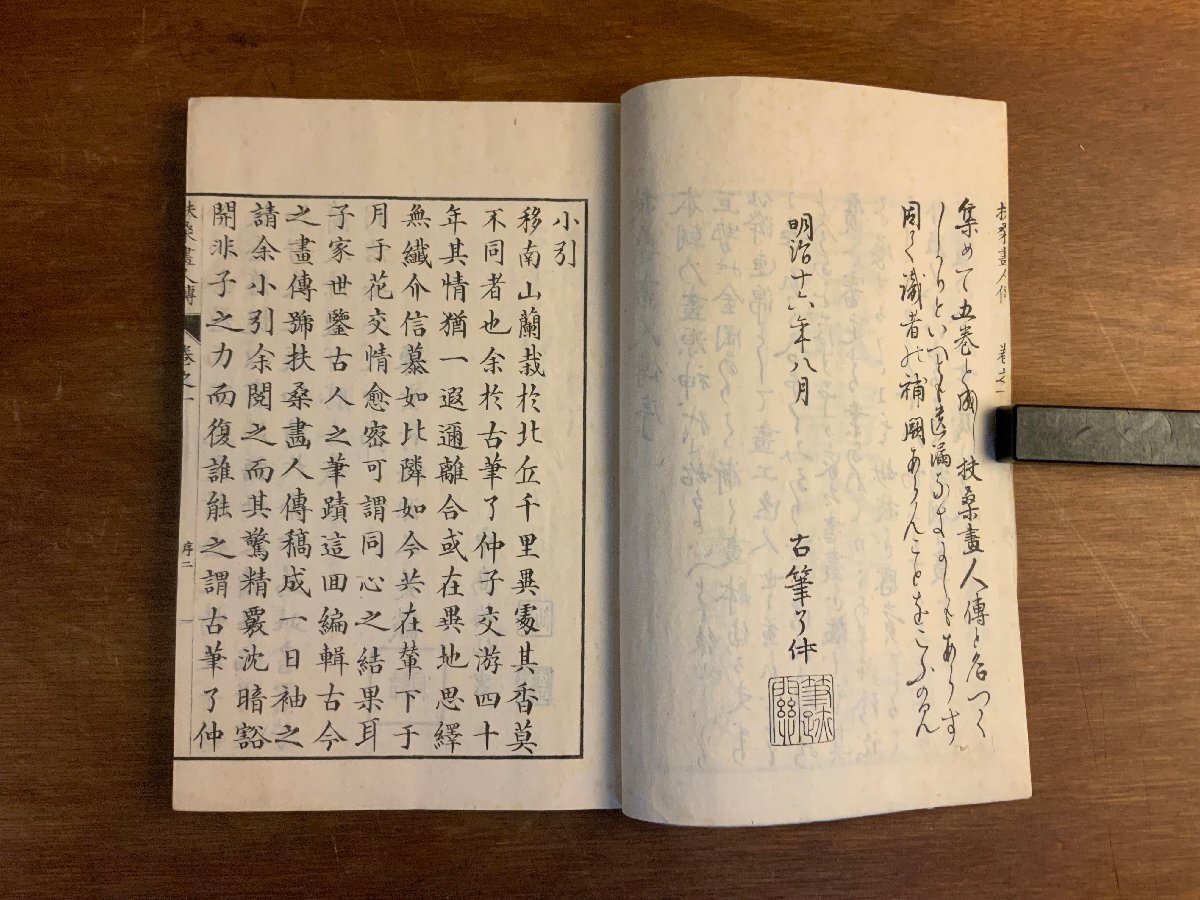 扶桑畫人傳 卷之一
集めて五巻と成し扶桑畫人傳と名つく
しかりといへとも遺漏なきにしもあらす
因て識者の補闕あらんことをこふのみ
明治十六年八月 古筆了仲
小引
移南山蘭栽於北丘千里異處其香莫
不同者也余於古筆了仲子交游四十
年其情猶一遐邇離合或在異地思繹
無纖介信慕如比隣如今共在輦下于
月于花交情愈密可謂同心之結果耳
子家世鑒古人之筆蹟這回編輯古今
之畫傳號扶桑畫人傳稿成一日袖之
請余小引余閱之而其驚精覈沈暗豁
開非子之力而復誰能之謂古筆了仲
扶桑畫人傳 卷之一 序二